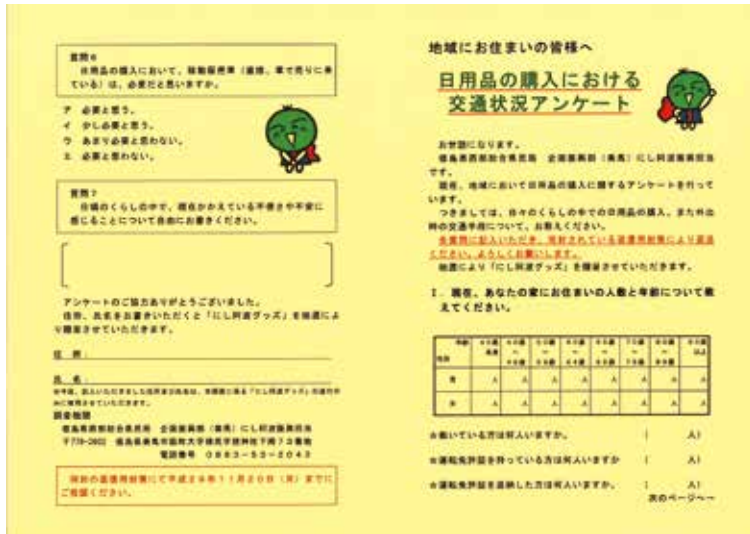 質問6
日用品の購入において、移動販売車（直接、車で売りに来
ている）は、必要だと思いますか。
ア　必要と思う。
イ　少し必要と思う。
ウ　あまり必要と思わない。
エ　必要と思わない。
質問7
日頃のくらしの中で、現在かかえている不便さや不安に
感じることについて自由にお書きください。
アンケートのご協力ありがとうございました。
住所、氏名をお書きいただくと「にし阿波グッズ」を抽選によ
り贈呈させていただきます。
住　所：
氏　名：
調査機関
徳島県西部総合県民局　企画振興部（美馬）にし阿波振興担当
電話番号　0883-53-2043
同封の返信用封筒にて平成29年11月20日（月）までに
ご投函ください。
地域にお住まいの皆様へ
日用品の購入における
交通状況アンケート
お世話になります。
徳島県西部総合県民局　企画振興部（美馬）にし阿波振興担当
です。
現在、地域において日用品の購入に関するアンケートを行って
います。
つきましては、日々のくらしの中での日用品の購入、また外出
時の交通手段について、お答えください。
各質問に記入いただき、同封されている返信用封筒により返送
ください。よろしくお願いします。
抽選により「にし阿波グッズ」を贈呈させていただきます。
I．現在、あなたの家にお住まいの人数と年齢について教
えてください。
年齢
性別
男　人　人　人　人　人　人　人　人
女　人　人　人　人　人　人　人　人
☆働いている方は何人いますか。　（　　人）
☆運転免許証を持っている方は何人いますか　（　　人）
☆運転免許証を返納した方は何人いますか。　（　　人）
次のページへ～